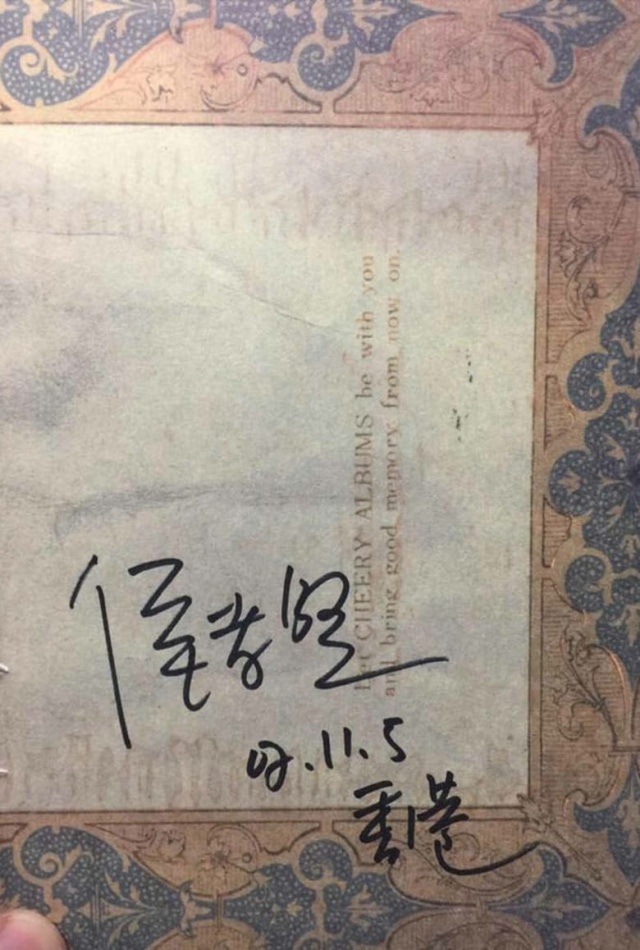 Let CHEERY ALBUMS be with you
and bring good memory from now on.
侯孝贤
07.11.5
香港